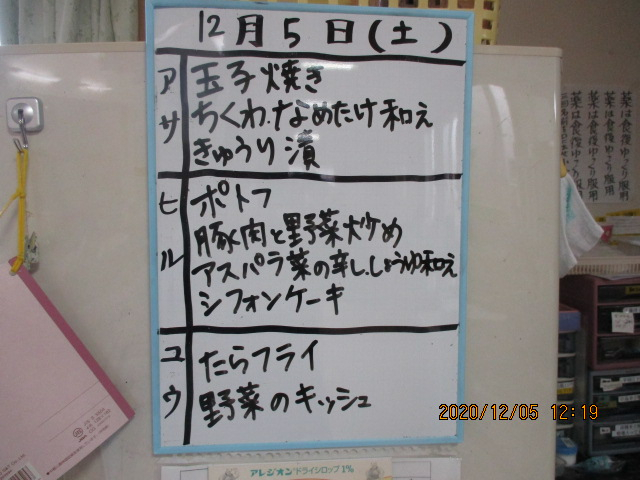 12月5日(土)
アサ
玉子焼き
ちくわ.なめたけ和え
きゅうり漬
ヒル
ポトフ
豚肉と野菜炒め
アスパラ菜の辛ししょうゆ和え
シフォンケーキ
ユウ
たらフライ
野菜のキッシュ
2020/12/05 12:19
アレジオンドライシロップ1%
薬は食後ゆっくり服用
薬は食後ゆっくり服用